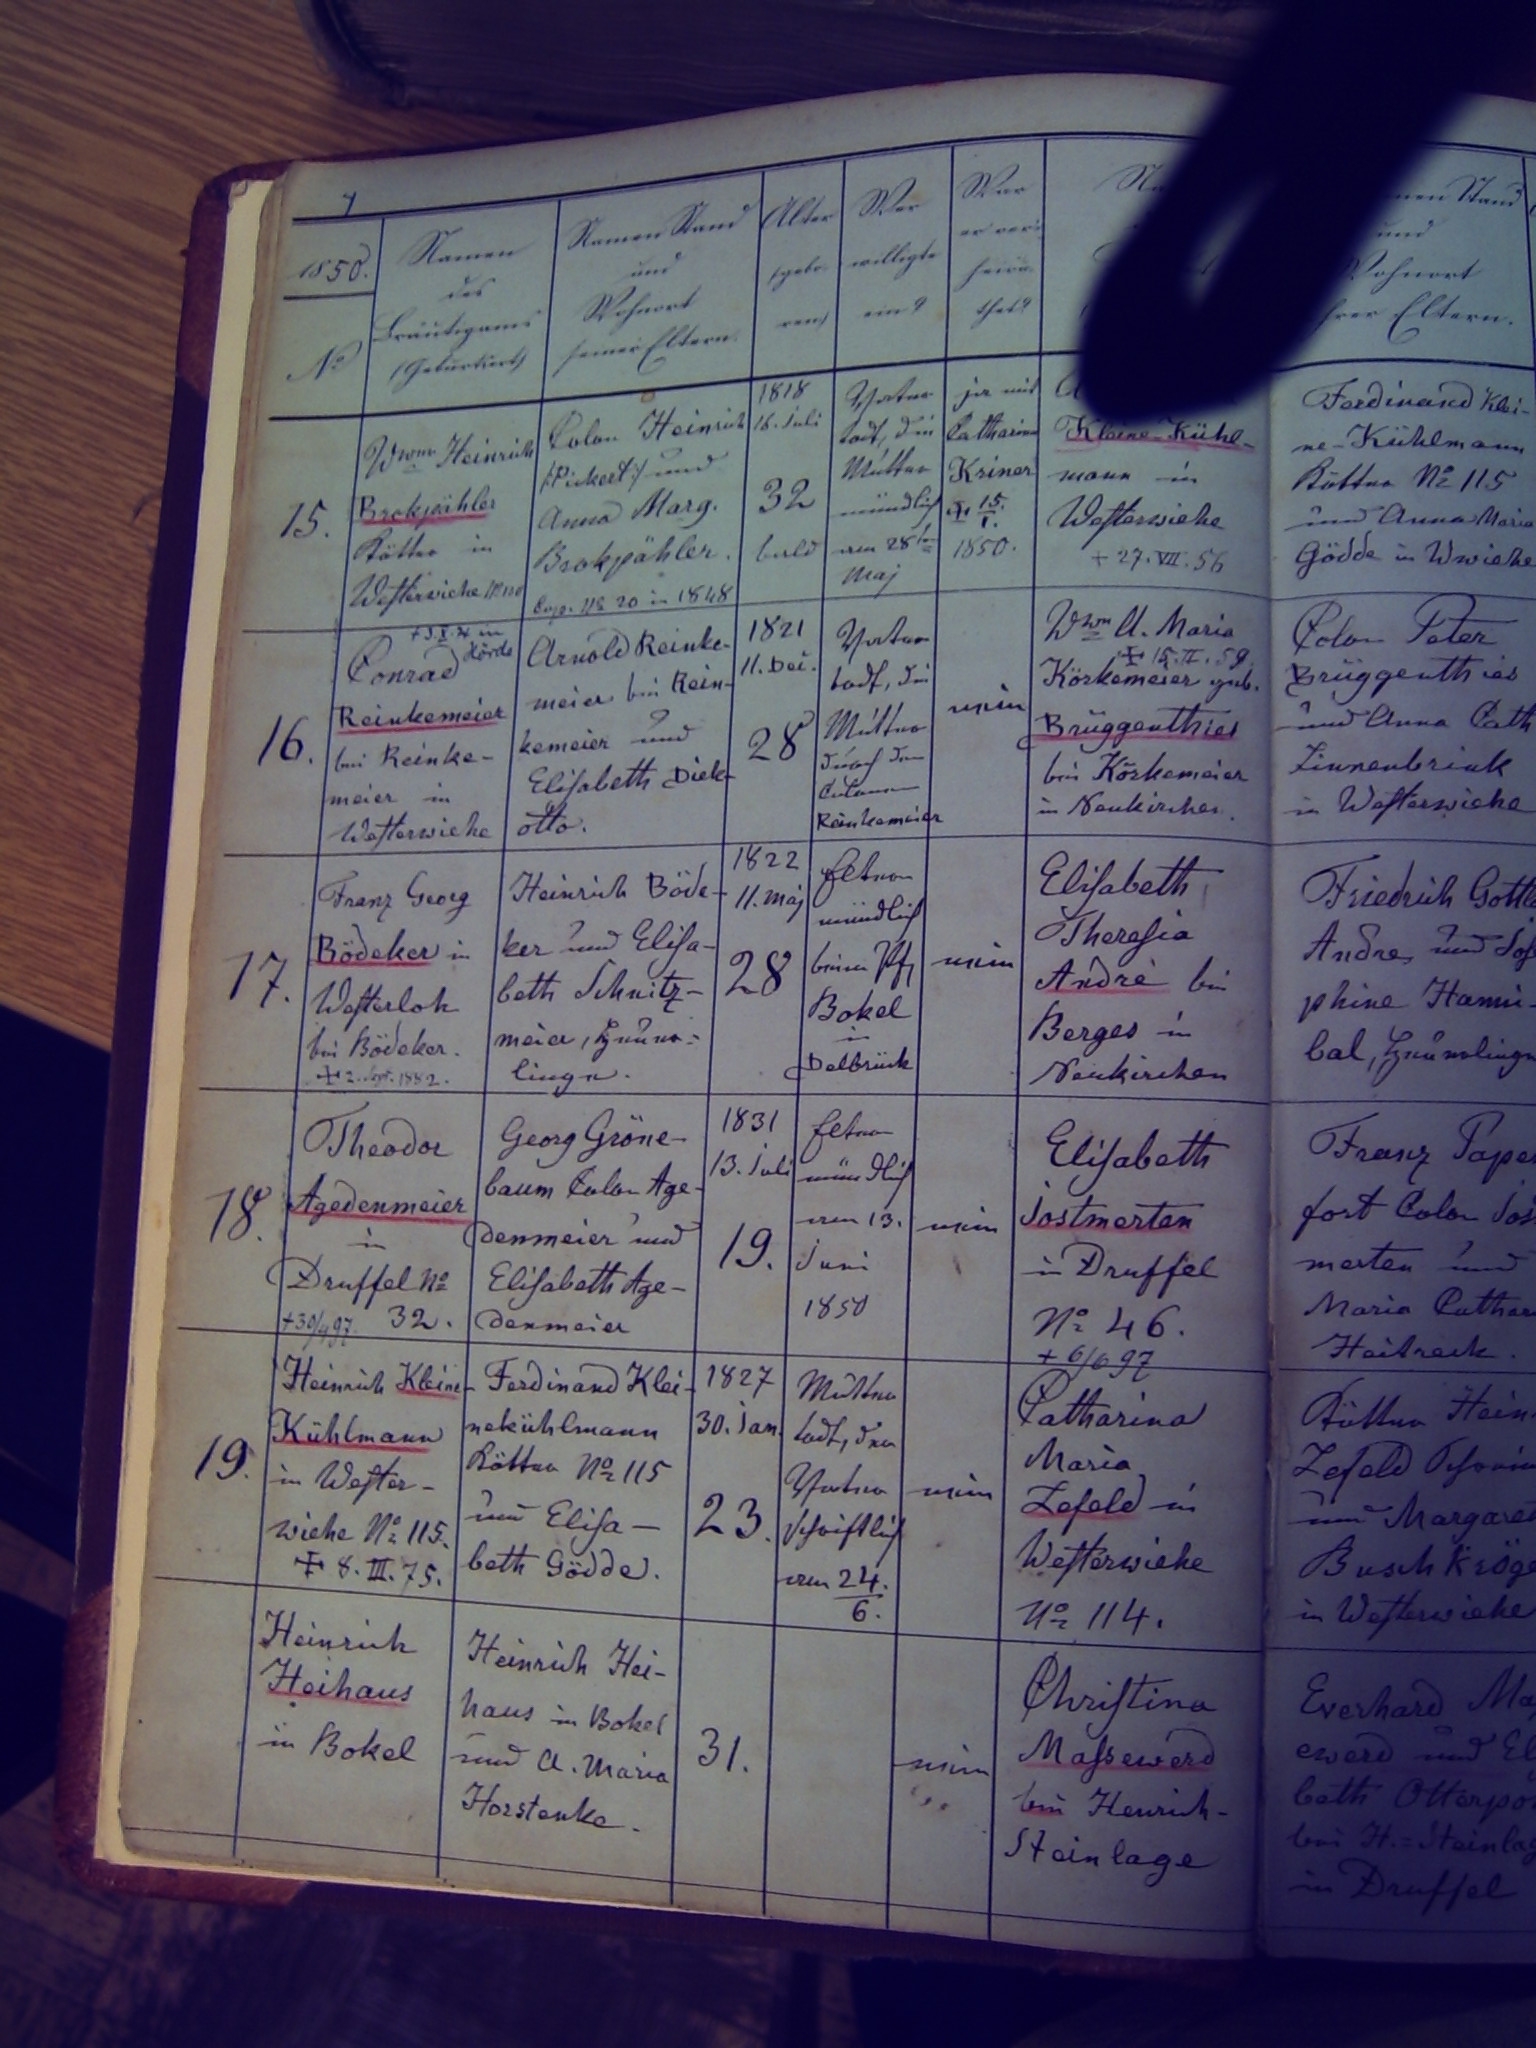 1850.
No
Namen
des
Bräutigams
(Geburtsort)
Namen Stand
und
Wohnort
seiner Eltern.
Alter
(gebo-
ren)
Wer
willigte
ein?
War
er verh
heira
thet?
und
Wohnort
ihrer Eltern.
15.
Wwer Heinrich
Brokpähler
Kötter in
Westerwiehe
Colon Heinrich
(:Pickert:) und
Anna Marg.
Brokpähler.
Cop. No 20 in 1848
1818
16. Juli
32
bald
Vater
todt, die
Mutter
mündlich
am 28ten
Maj
ja mit
Catharina
Kriner
+ 15.
1.
1850.
Kleine-Kühl-
mann in
Westerwiehe
+ 27. VII. 56
Ferdinand Klei-
ne-Kühlmann
Kötter No 115
und Anna Maria
Gödde in Wwiehe
16.
Conrad
Reinkemeier
bei Reinke-
meier in
Westerwiehe
Arnold Reinke-
meier bei Rein-
kemeier und
Elisabeth Diek-
otto.
1821
11. Dec.
28
Vater
todt, die
Mutter
durch den
Colonen
Reinkemeier
nein
Wwe A. Maria
+ 15. II. 59.
Körkemeier geb.
Brüggenthies
bei Körkemeier
in Neukirchen.
Colon Peter
Brüggenthies
und Anna Cath
Linnenbrink
in Westerwiehe
17.
Franz Georg
Bödeker in
Westerloh
bei Bödeker.
+ 2. Sept. 1882.
Heinrich Böde-
ker und Elisa-
beth Schnitz-
meier, Heuer-
linge.
1822
11. Maj
28
Eltern
mündlich
beim Pf.
Bokel
in
Delbrück
nein
Elisabeth
Theresia
André bei
Berges in
Neukirchen
Friedrich Gottl
Andre, und Jos
phine Hanni-
bal, Heuerlinge
18.
Theodor
Agedenmeier
in
Druffel No
32.
+30/4 97.
Georg Gröne-
baum Colon Age-
denmeier und
Elisabeth Age-
denmeier
1831
13. Juli
19.
Eltern
mündlich
am 13.
Juni
1850
nein
Elisabeth
Jostmerten
in Druffel
No 46.
+ 6/6 97
Franz Pape
fort Colon Jos
merten und
Maria Cathar
Heitreck.
19.
Heinrich Kleine-
Kühlmann
in Wester-
wiehe No 115.
+ 8. III. 75.
Ferdinand Klei-
nekühlmann
Kötter No 115
und Elisa-
beth Gödde.
1827
30. Jan.
23.
Mutter
todt, der
Vater
schriftlich
am 24.
6.
nein
Catharina
Maria
Lefeld in
Westerwiehe
No 114.
Kötter Hein
Lefeld
und Margare
Buschkröge
in Westerwiehe
Heinrich
Heihaus
in Bokel
Heinrich Hei-
haus in Bokel
und A. Maria
Horstenke.
31.
nein
Christina
Massewerd
bei Henrich-
Steinlage
Everhard Ma
ewerd und El
beth Otterpo
bei H.=Steinlag
in Druffel